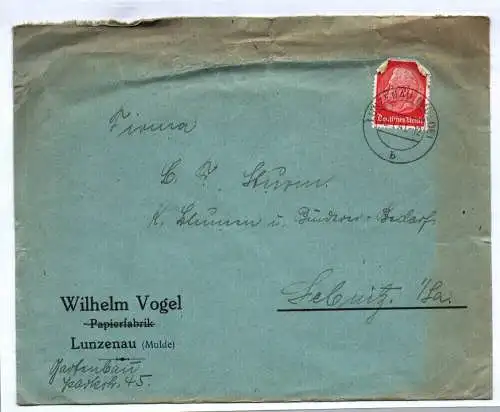 Firma
C. F. Sturm.
K. Blumen u. Binderei-Bedarf
Sebnitz. i/Sa.
Wilhelm Vogel
Papierfabrik
Lunzenau (Mulde)
Gartenbau
Parkstr. 45.
Deutsches Reich
b